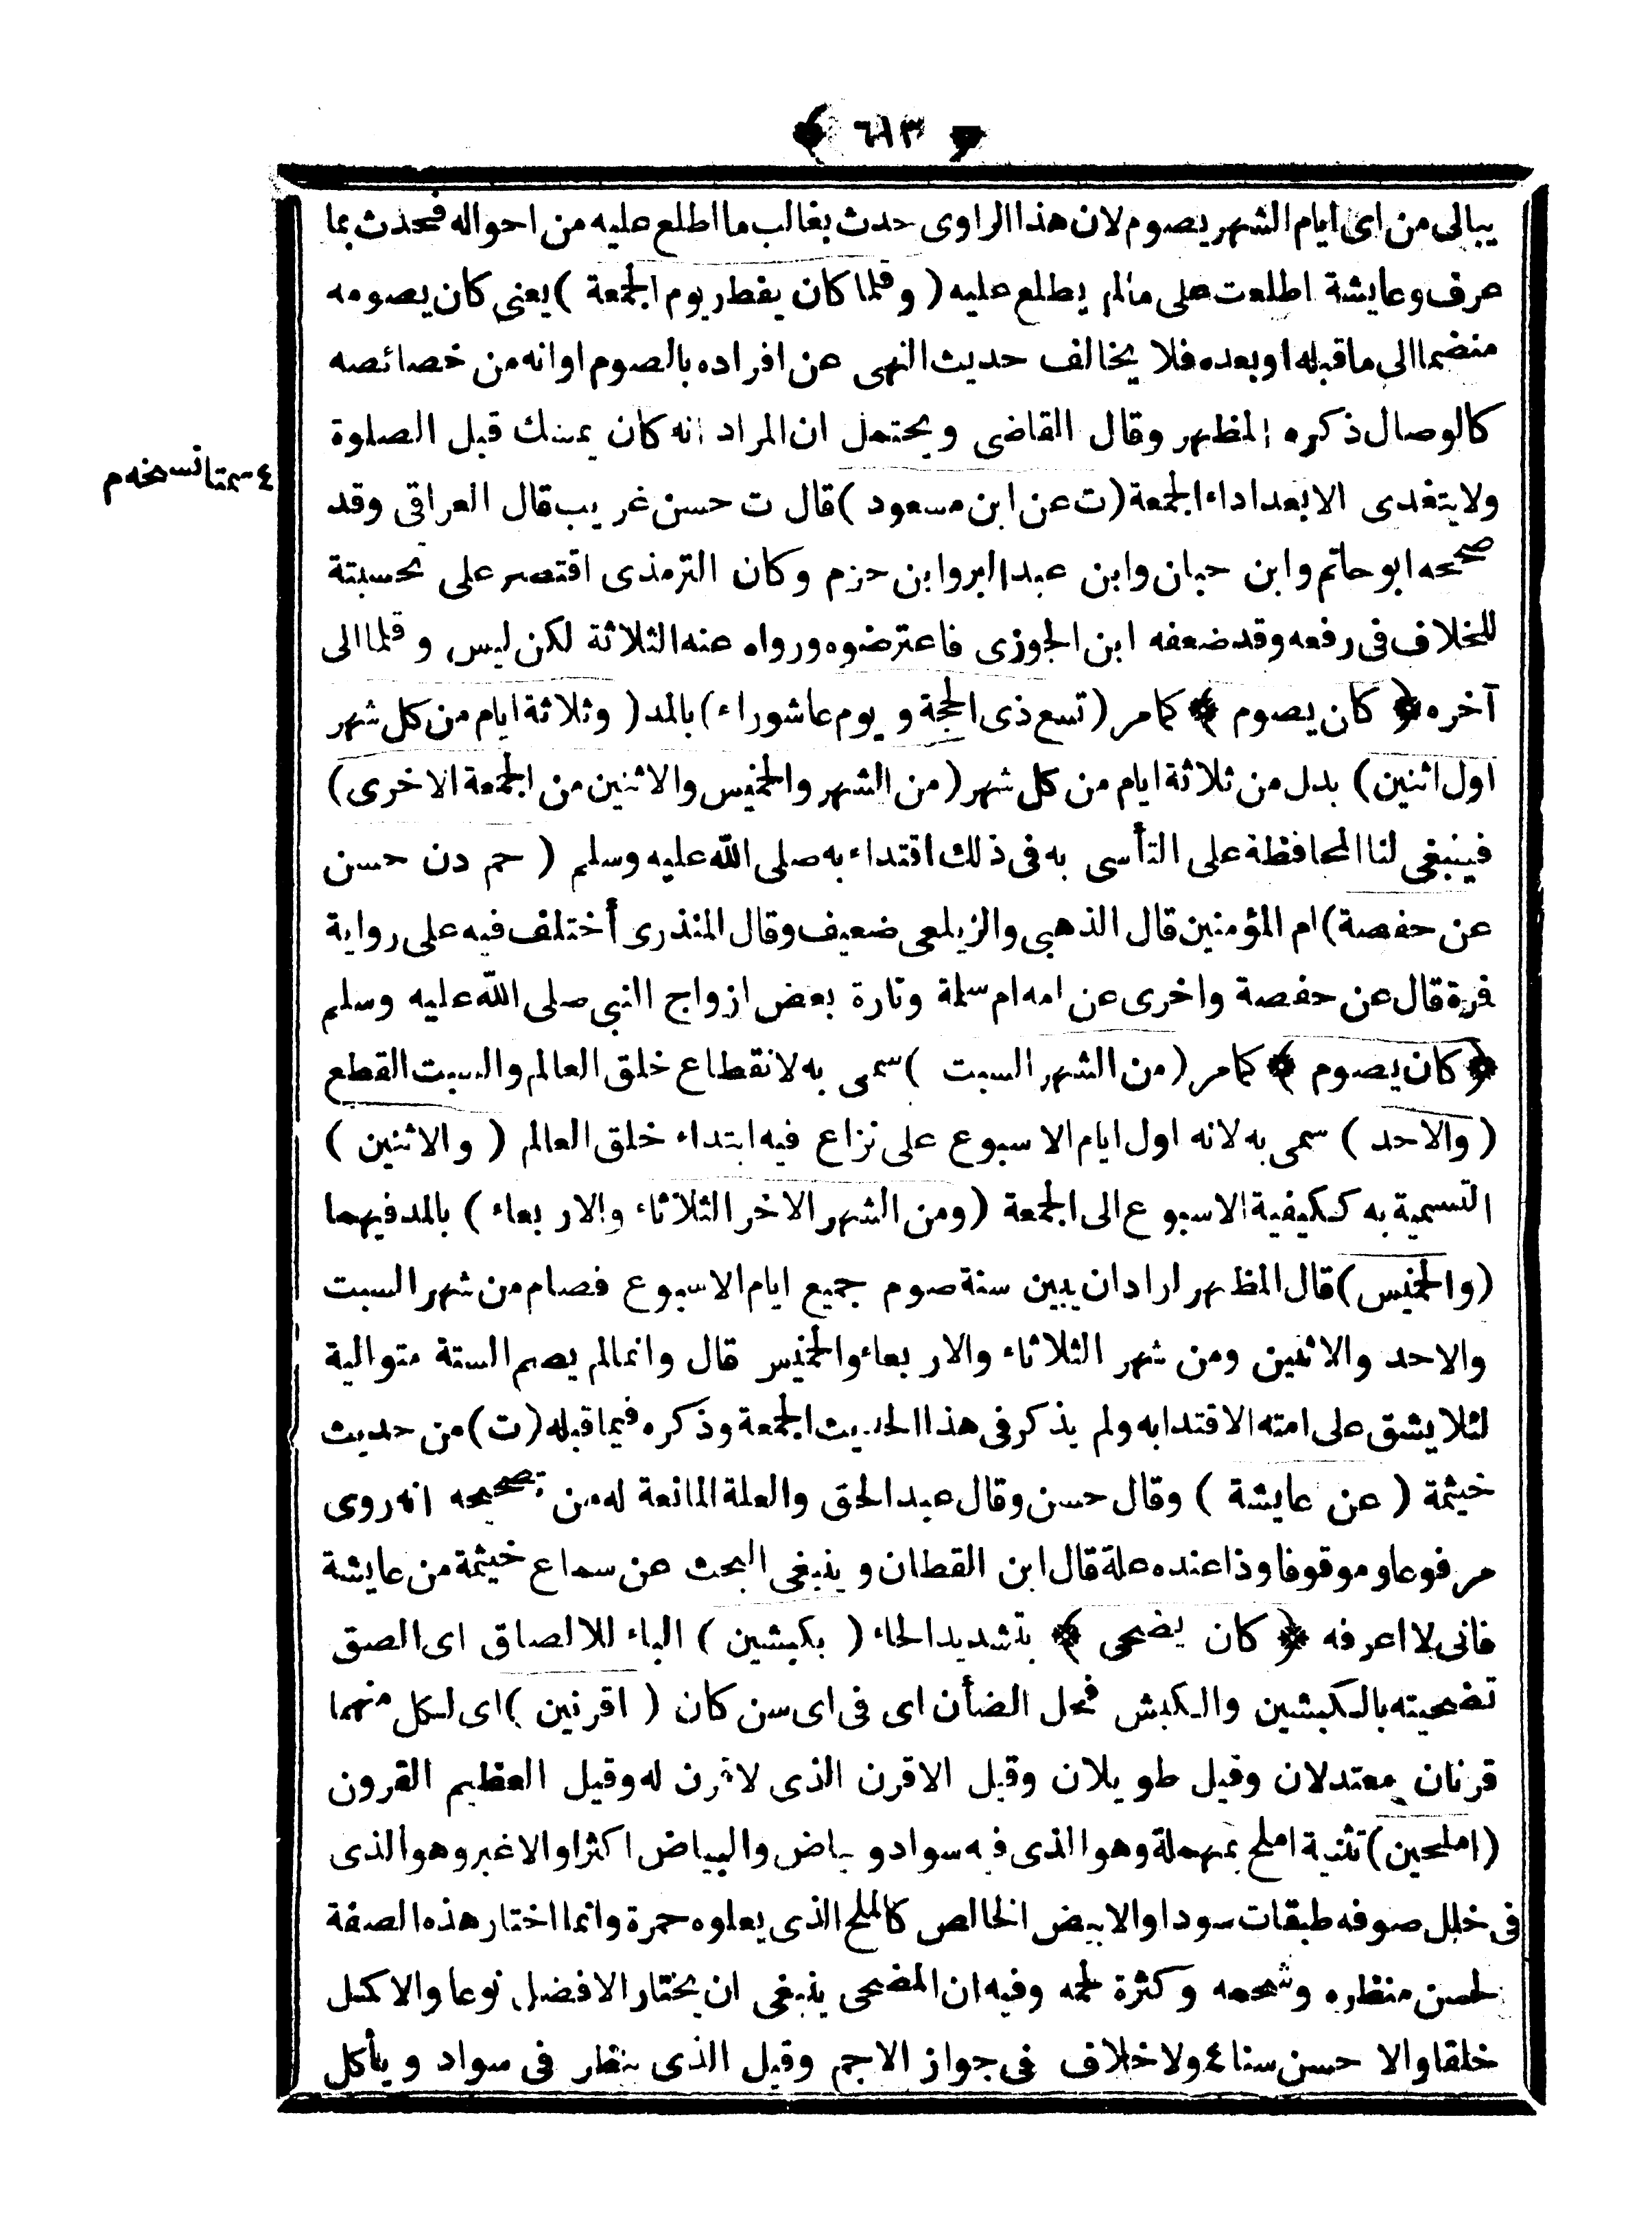 ﴿ ٦١٣ ﴾
يبالى من اى ايام الشهر يصوم لان هذا الراوى حدث بغالب ما اطلع عليه من احواله فحدث بما
عرف وعايشة اطلعت على مالم يطلع عليه ( وقلما كان يفطر يوم الجمعة ) يعنى كان يصومه
منضما الى ماقبله او بعده فلا يخالف حديث النهى عن افراده بالصوم او انه من خصائصه
كالوصال ذكره المظهر وقال القاضى ويحتمل ان المراد انه كان يمسك قبل الصلوة
ولا يتغدى الا بعد اداء الجمعة ( ت عن ابن مسعود ) قال ت حسن غريب قال العراقى وقد
صححه ابو حاتم وابن حبان وابن عبد البر وابن حزم وكان الترمذى اقتصر على تحسينه
للخلاف فى رفعه وقد ضعفه ابن الجوزى فاعترضوه ورواه عنه الثلاثة لكن ليس وقلما الى
آخره ﴿ كان يصوم ﴾ كمامر ( تسع ذى الحجة ويوم عاشوراء ) بالمد ( وثلاثة ايام من كل شهر
اول اثنين ) بدل من ثلاثة ايام من كل شهر ( من الشهر والخميس والاثنين من الجمعة الاخرى )
فينبغى لنا المحافظة على التأسى به فى ذلك اقتداء به صلى الله عليه وسلم ( حم دن حسن
عن حفصة ) ام المؤمنين قال الذهبى والزيلعى ضعيف وقال المنذرى أختلف فيه على رواية
فرة قال عن حفصة واخرى عن امه ام سلمة وتارة بعض ازواج النبى صلى الله عليه وسلم
﴿ كان يصوم ﴾ كمامر ( من الشهر السبت ) سمى به لانقطاع خلق العالم والسبت القطع
( والاحد ) سمى به لانه اول ايام الاسبوع على نزاع فيه ابتداء خلق العالم ( والاثنين )
التسمية به ككيفية الاسبوع الى الجمعة ( ومن الشهر الاخر الثلاثاء والاربعاء ) بالمد فيهما
( والخميس ) قال المظهر اراد ان يبين سنة صوم جميع ايام الاسبوع فصام من شهر السبت
والاحد والاثنين ومن شهر الثلاثاء والاربعاء والخميس قال وانمالم يصم الستة متوالية
لئلا يشق على امته الاقتدابه ولم يذكر فى هذا الحديث الجمعة وذكره فيما قبله ( ت ) من حديث
خيثمة ( عن عايشة ) وقال حسن وقال عبد الحق والعلة المانعة له من تصحيحه انه روى
مرفوعا وموقوفا وذا عنده علة قال ابن القطان وينبغى البحث عن سماع خيثمة من عايشة
فانى لا اعرفه ﴿ كان يضحى ﴾ بتشديد الحاء ( بكبشين ) الباء للالصاق اى الصق
تضحيته بالكبشين والكبش فحل الضأن اى فى اى سن كان ( اقرنين ) اى لكل منهما
قرنان معتدلان وقيل طويلان وقيل الاقرن الذى لاقرن له وقيل العظيم القرون
( املحين ) تثنية املح بمهملة وهو الذى فيه سواد وبياض والبياض اكثر او الاغبر وهو الذى
فى خلل صوفه طبقات سود او الابيض الخالص كالملح الذى يعلوه حمرة وانما اختار هذه الصفة
لحسن منظره وشحمه وكثرة لحمه وفيه ان المضحى ينبغى ان يختار الافضل نوعا والاكمل
خلقا والا حسن سنا ٤ ولا خلاف فى جواز الاجم وقيل الذى ينظر فى سواد ويأكل
٤ سمتا نسخه م